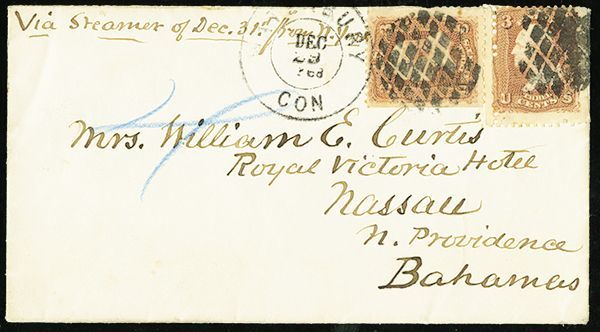 Via Steamer of Dec. 31st from N.Y.
BURY
DEC
29
CON
3
U CENTS S
Mrs. William E. Curtis
Royal Victoria Hotel
Nassau
N. Providence
Bahamas